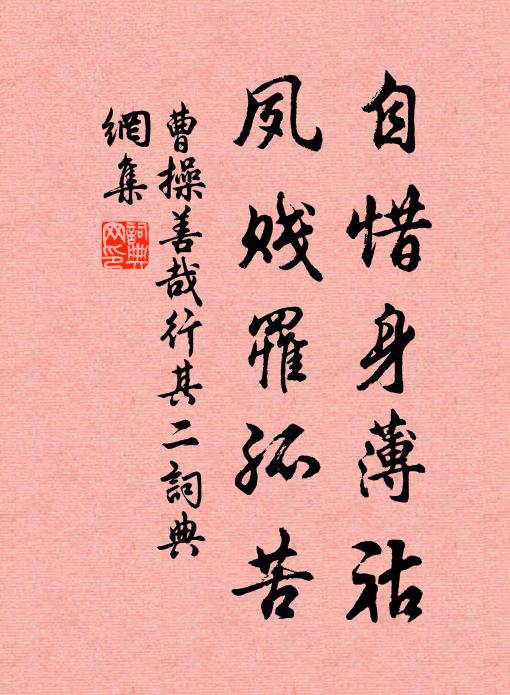 自惜身薄祜
夙賤罹孤苦
曹操善哉行其二詞典
網集
詞典網印